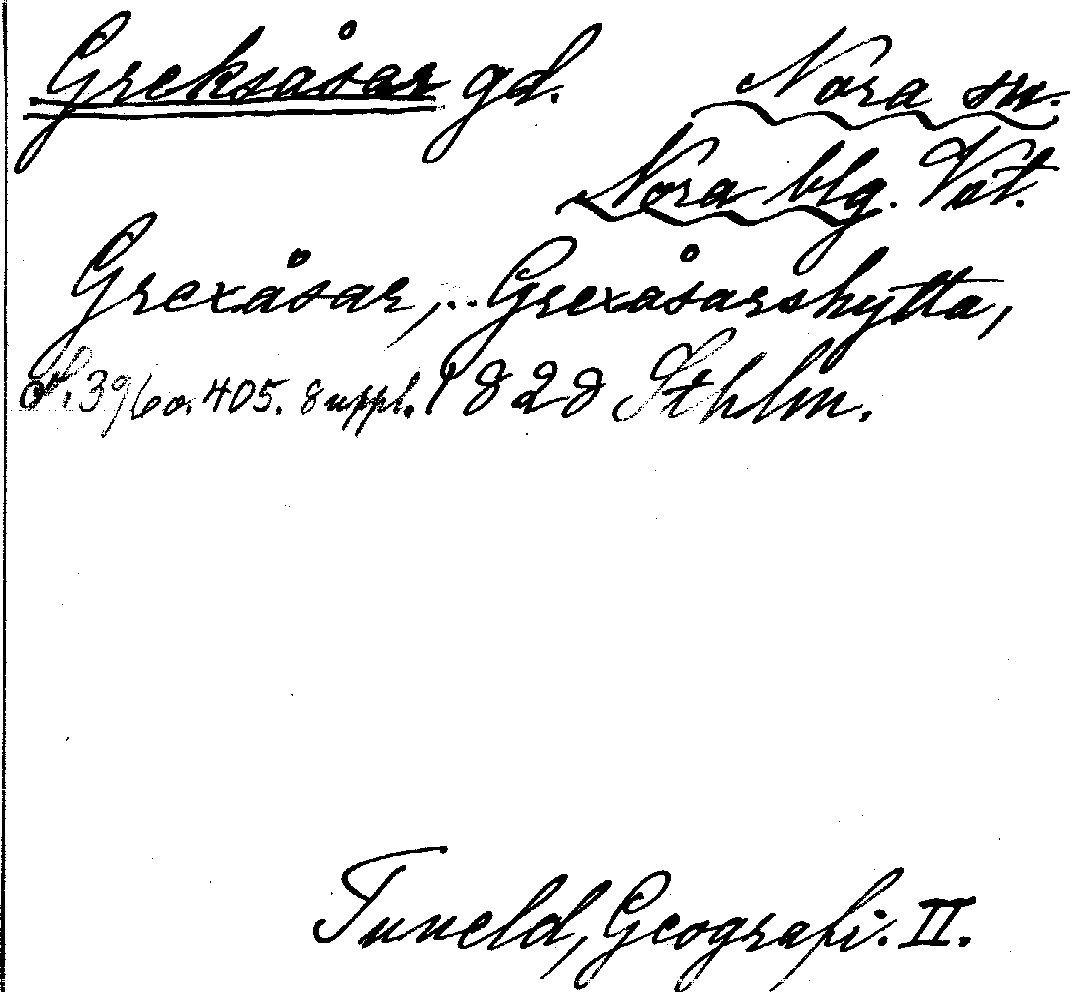 Greksåsar gd. Nora sn.
Nora blg. Vstm.
Grexåsar, .. Grexåsarshytta,
S. 396 o. 405. Suppl. 1828 Sthlm.
Tuneld, Geografi. II.